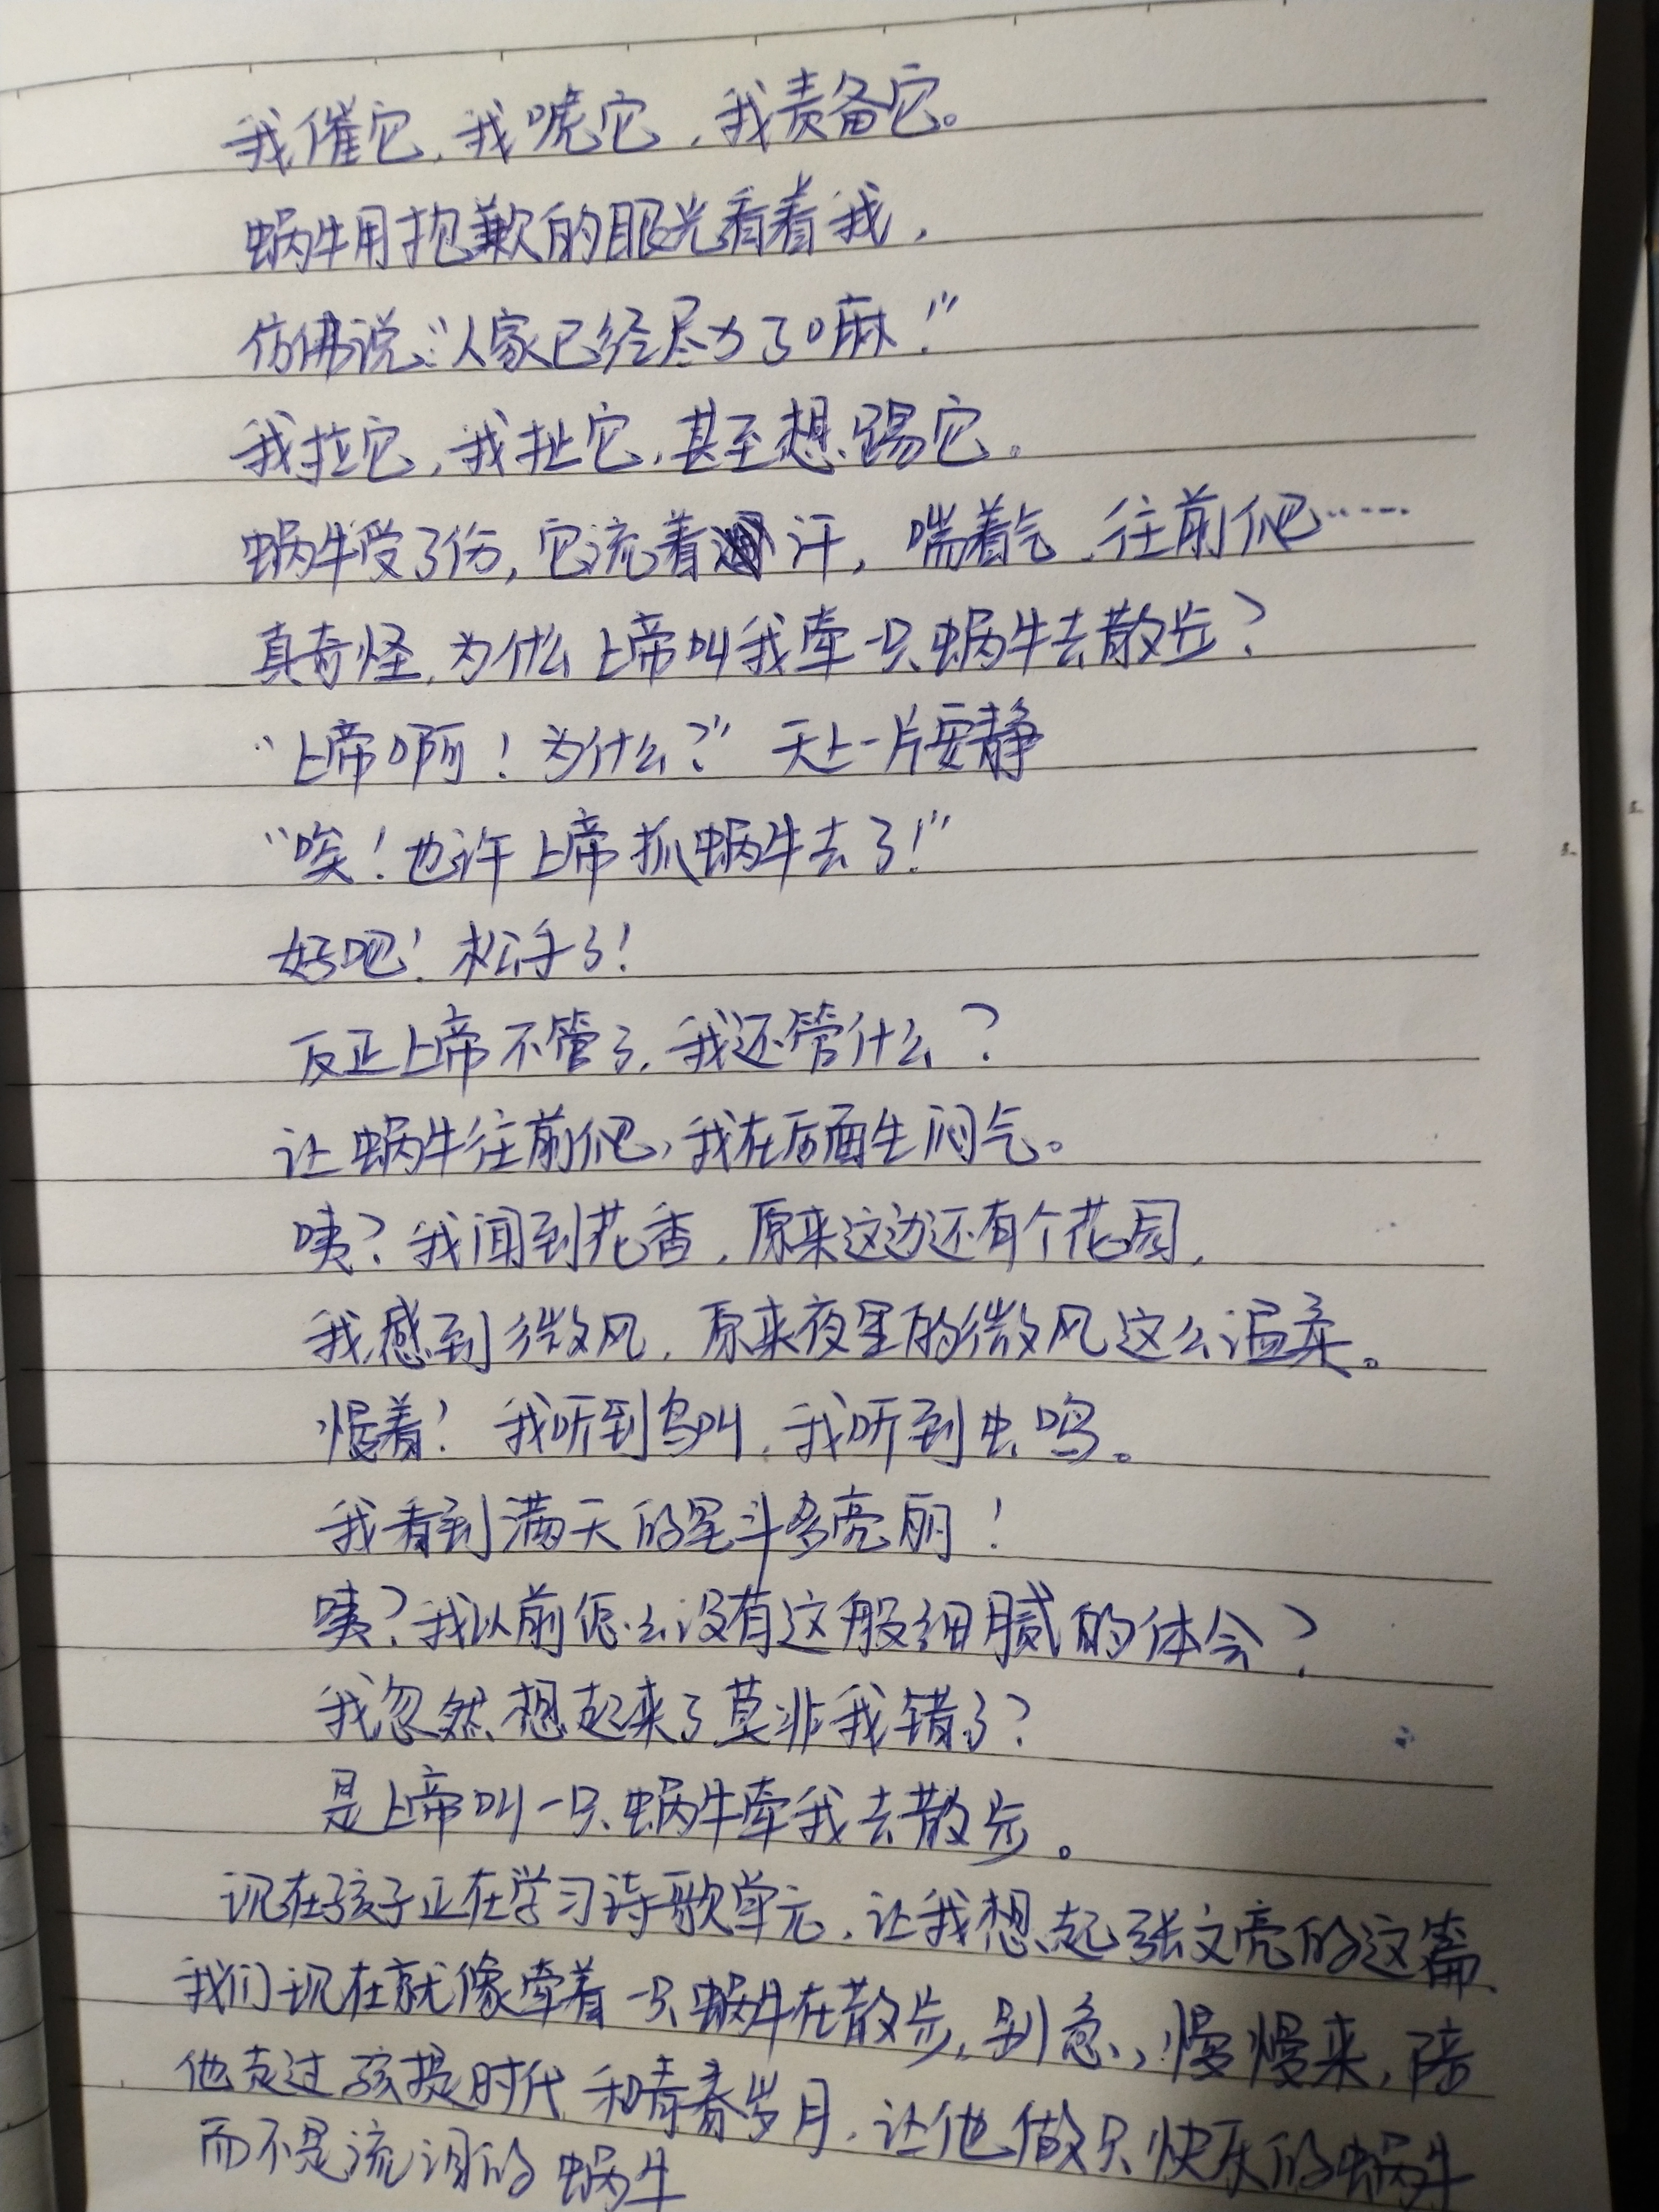 我催它,我唬它,我责备它。
蜗牛用抱歉的眼光看着我,
仿佛说:“人家已经尽力了嘛!”
我拉它,我扯它,甚至想踢它。
蜗牛受了伤,它流着汗,喘着气,往前爬……
真奇怪,为什么上帝叫我牵一只蜗牛去散步?
“上帝啊!为什么?”天上一片安静
“唉!也许上帝抓蜗牛去了!”
好吧!松手了!
反正上帝不管了,我还管什么?
让蜗牛往前爬,我在后面生闷气。
咦?我闻到花香,原来这边还有个花园,
我感到微风,原来夜里的微风这么温柔。
慢着!我听到鸟叫,我听到虫鸣。
我看到满天的星斗多亮丽!
咦?我以前怎么没有这般细腻的体会?
我忽然想起来了莫非我错了?
是上帝叫一只蜗牛牵我去散步。
现在孩子正在学习诗歌单元,让我想起张文亮的这篇
我们现在就像牵着一只蜗牛在散步,别急,慢慢来,陪
他走过孩提时代和青春岁月,让他做只快乐的蜗牛
而不是流泪的蜗牛